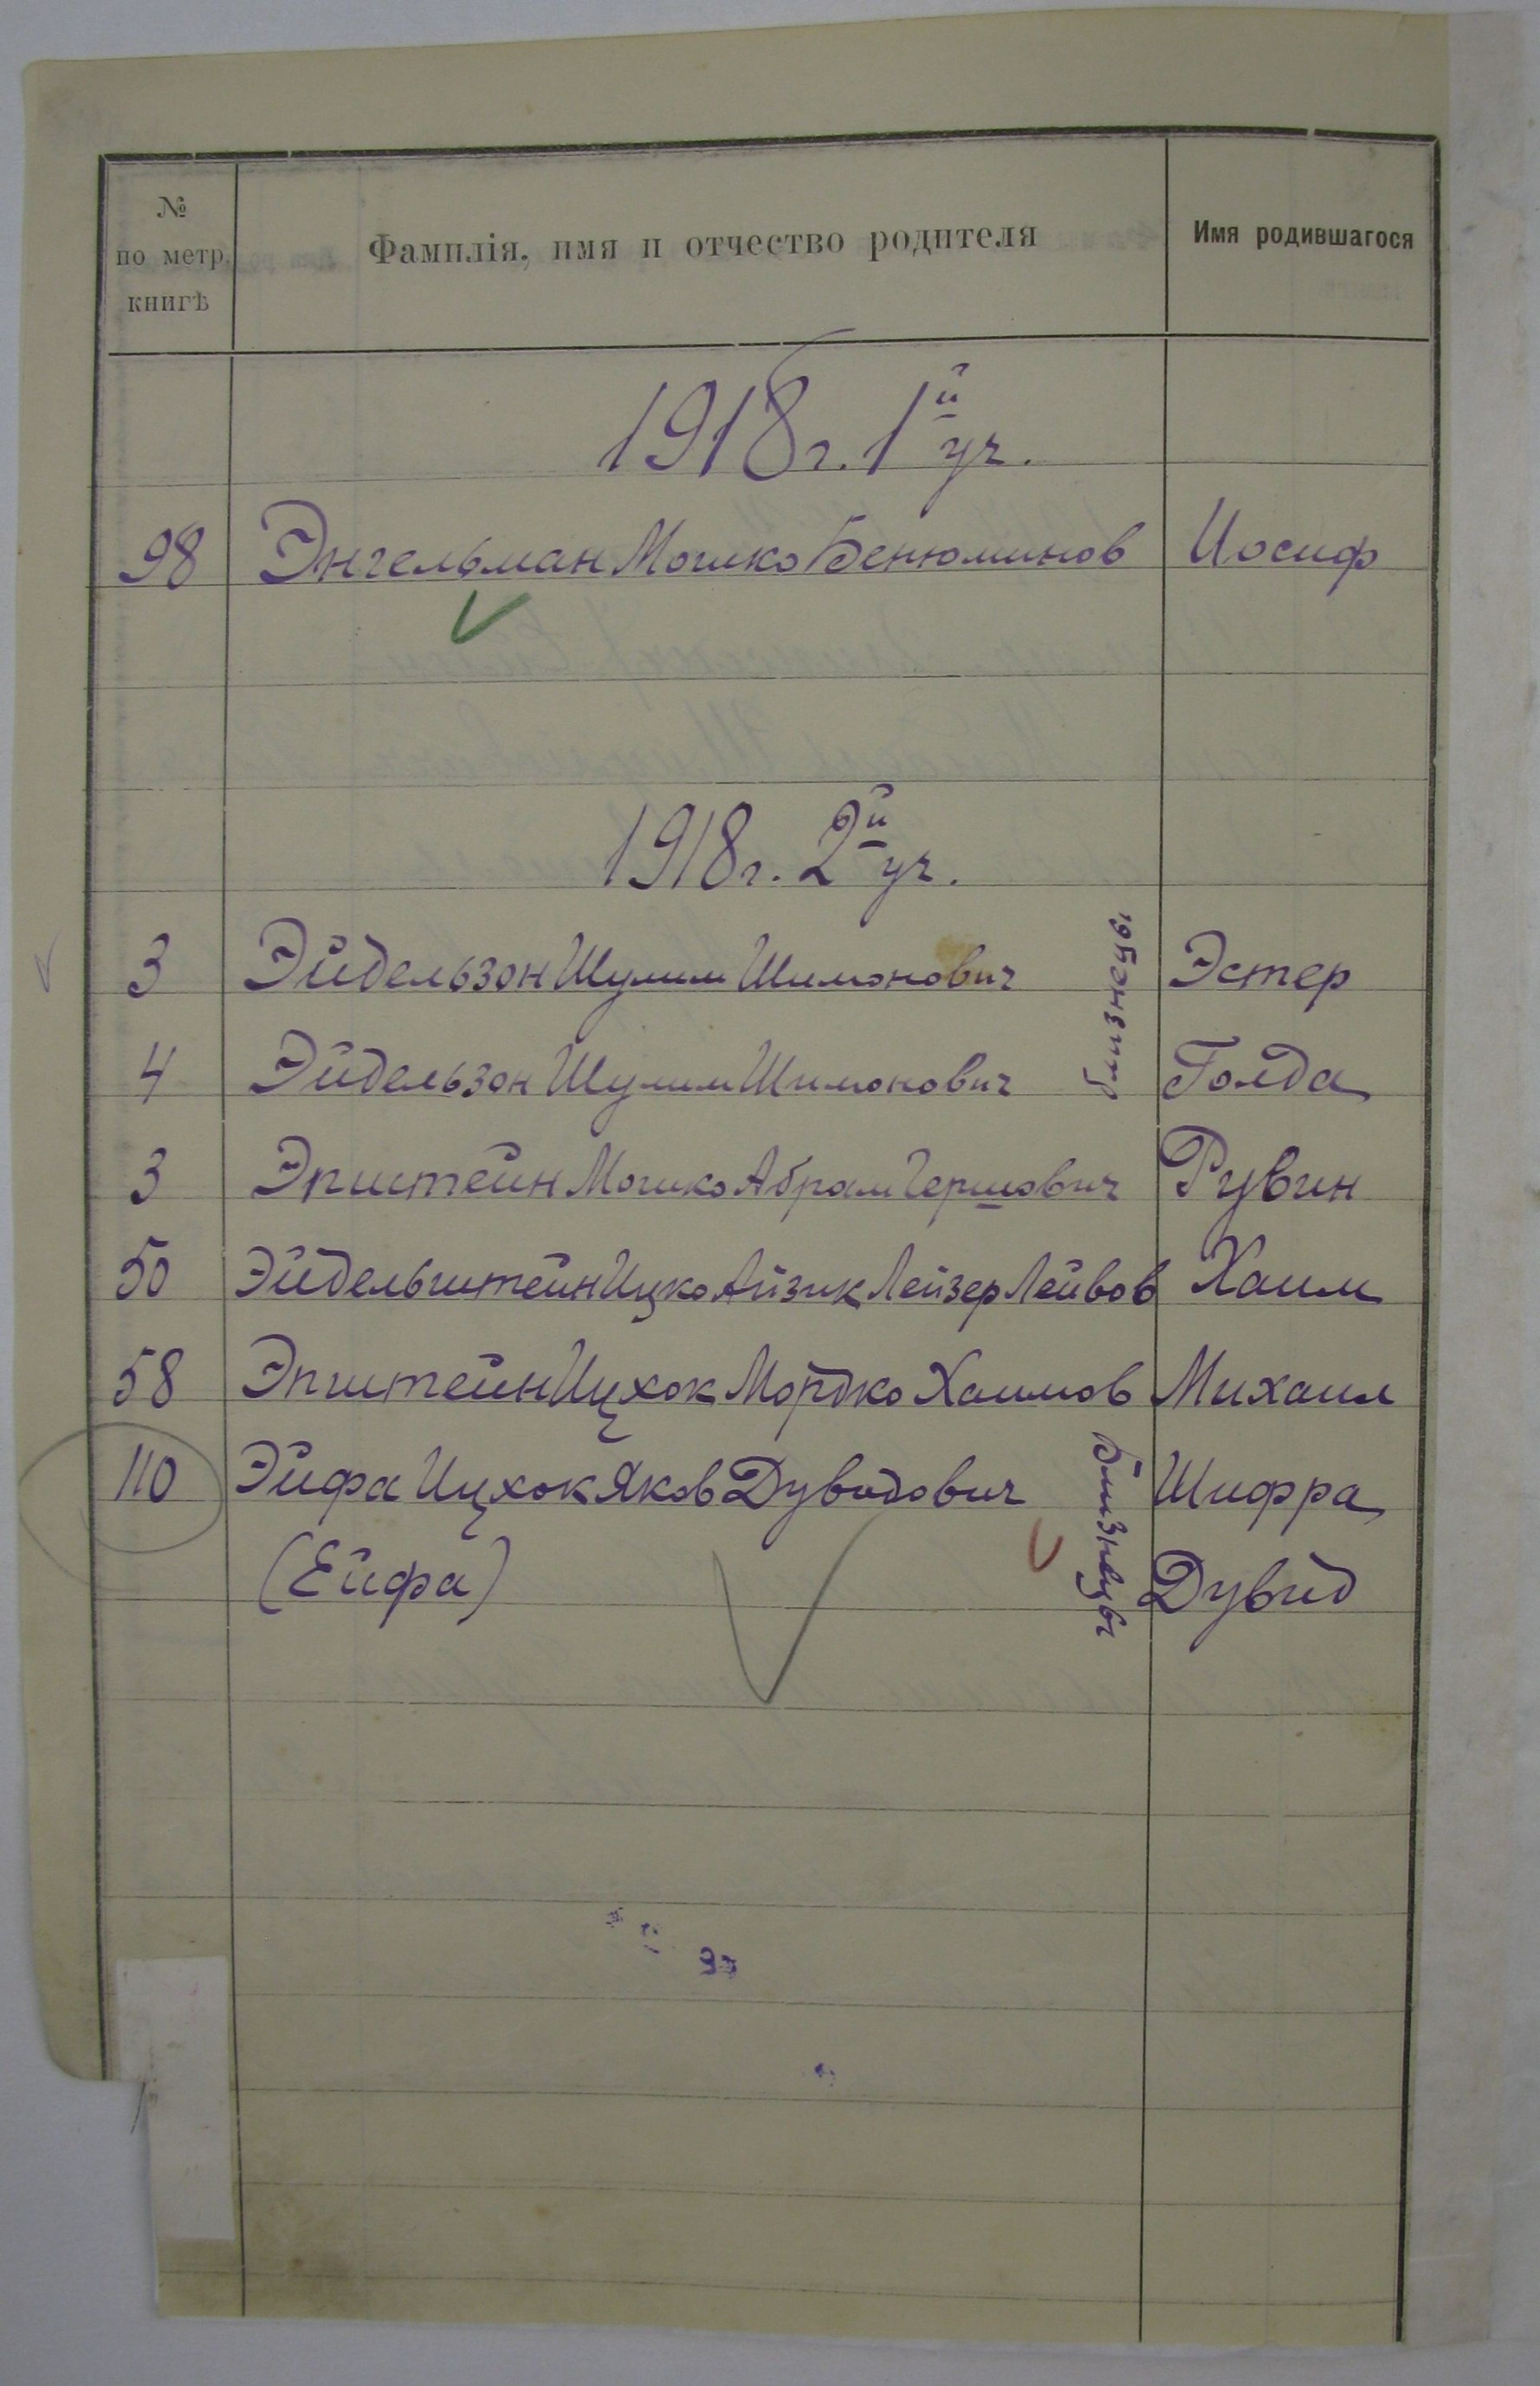 № по метр. книгѣ
Фамилія, имя и отчество родителя
Имя родившагося
1918 г. 1й уч.
98 Энгельман Мошко Бенюминов Иосиф
1918 г. 2й уч.
3 Эйдельзон Шулим Шимонович близнецы Эстер
4 Эйдельзон Шулим Шимонович Голда
3 Эпштейн Мошко Абрам Гершович Рувин
50 Эйдельштейн Ицко Айзик Лейзер Лейвов Хаим
58 Эпштейн Ицхок Мордко Хаимов Михаил
110 Эйфа Ицхок Яков Дувидович близнецы Шифра
(Ейфа) Дувид